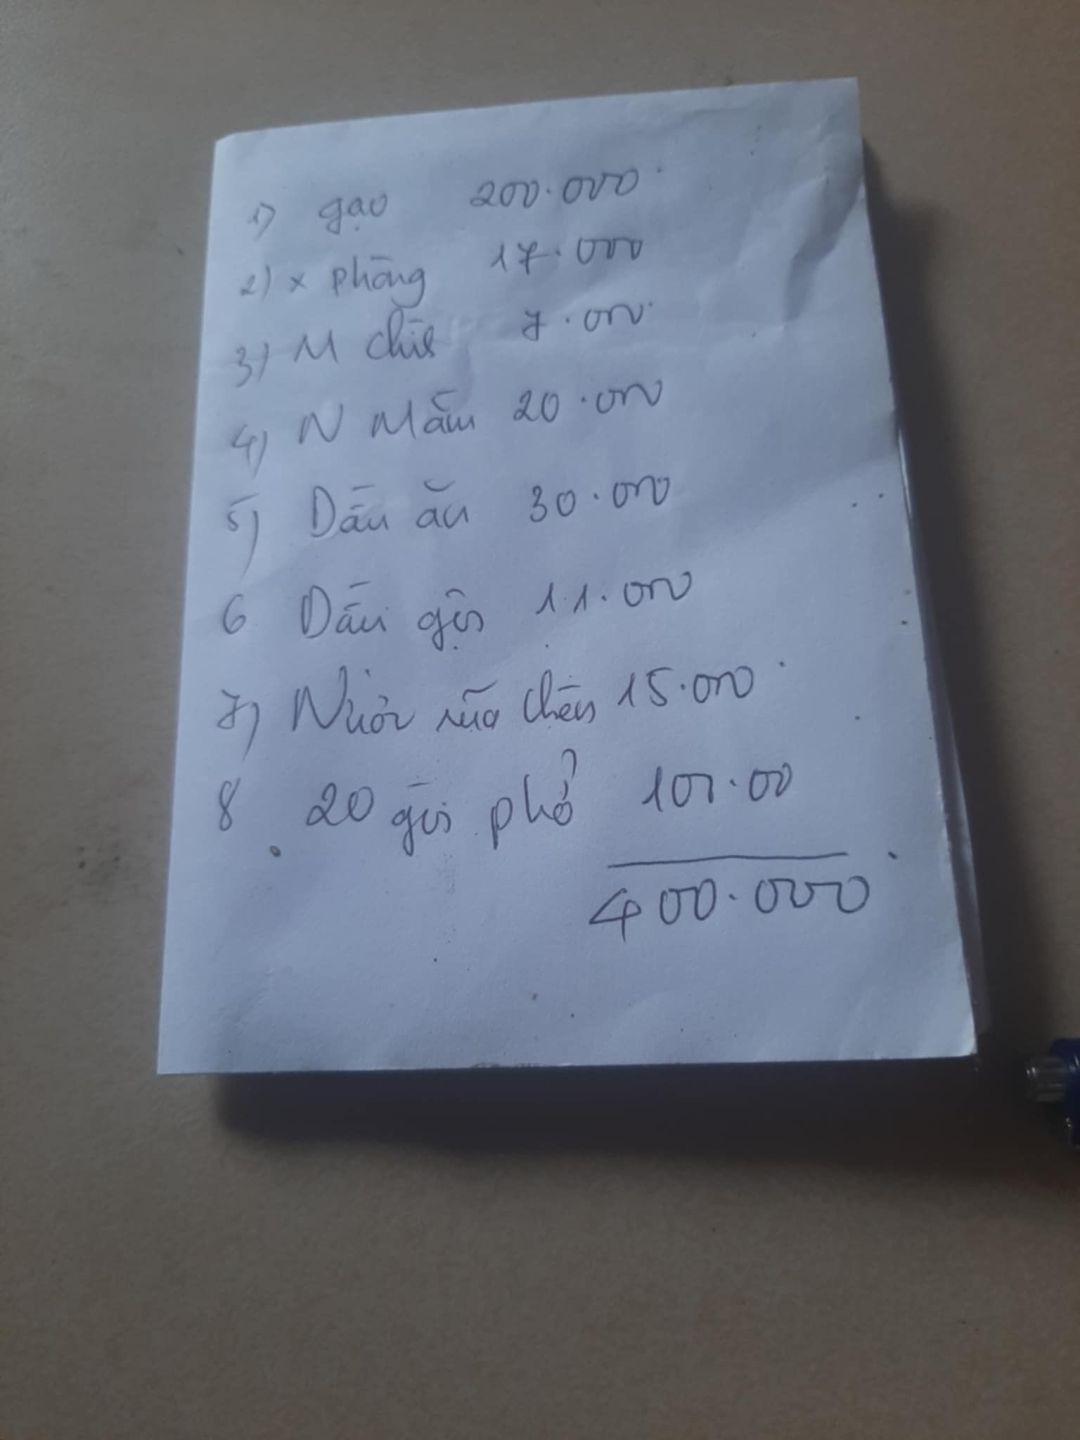 1) gạo 200.000
2) x phòng 17.000
3) M chín 7.000
4) N Mắm 20.000
5) Dầu ăn 30.000
6 Dầu gội 11.000
7) Nước rửa chén 15.000
8 20 gói phở 100.00
400.000